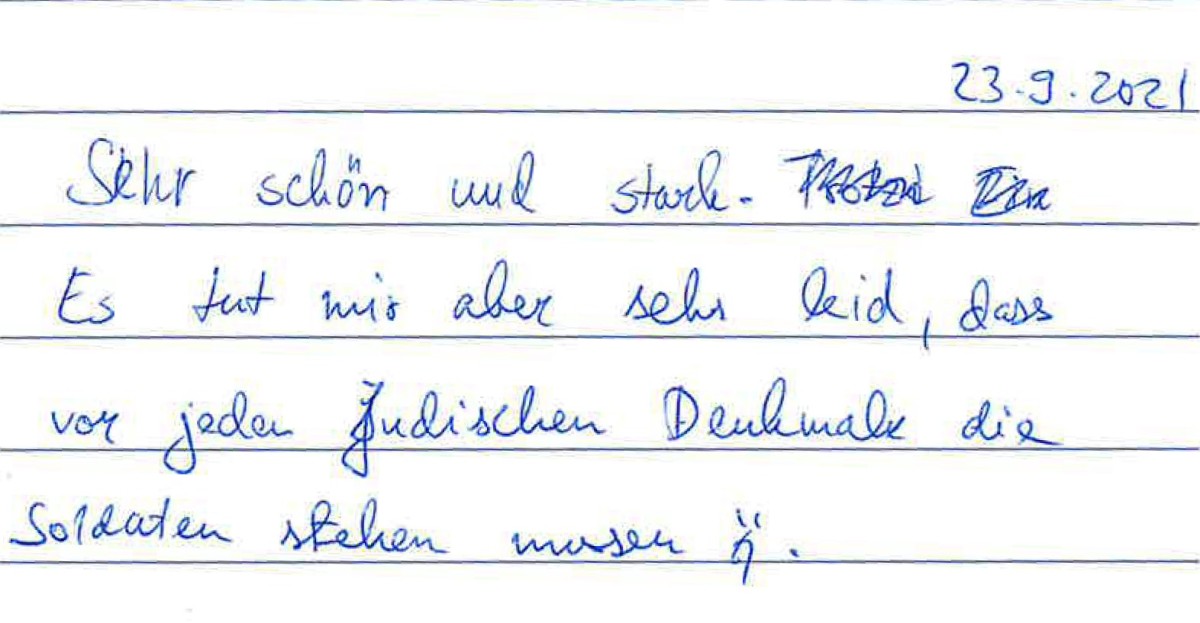 23.9.2021
Sehr schön und stark.
Es tut mir aber sehr leid, dass
vor jeden Judischen Denkmale die
Soldaten stehen musen